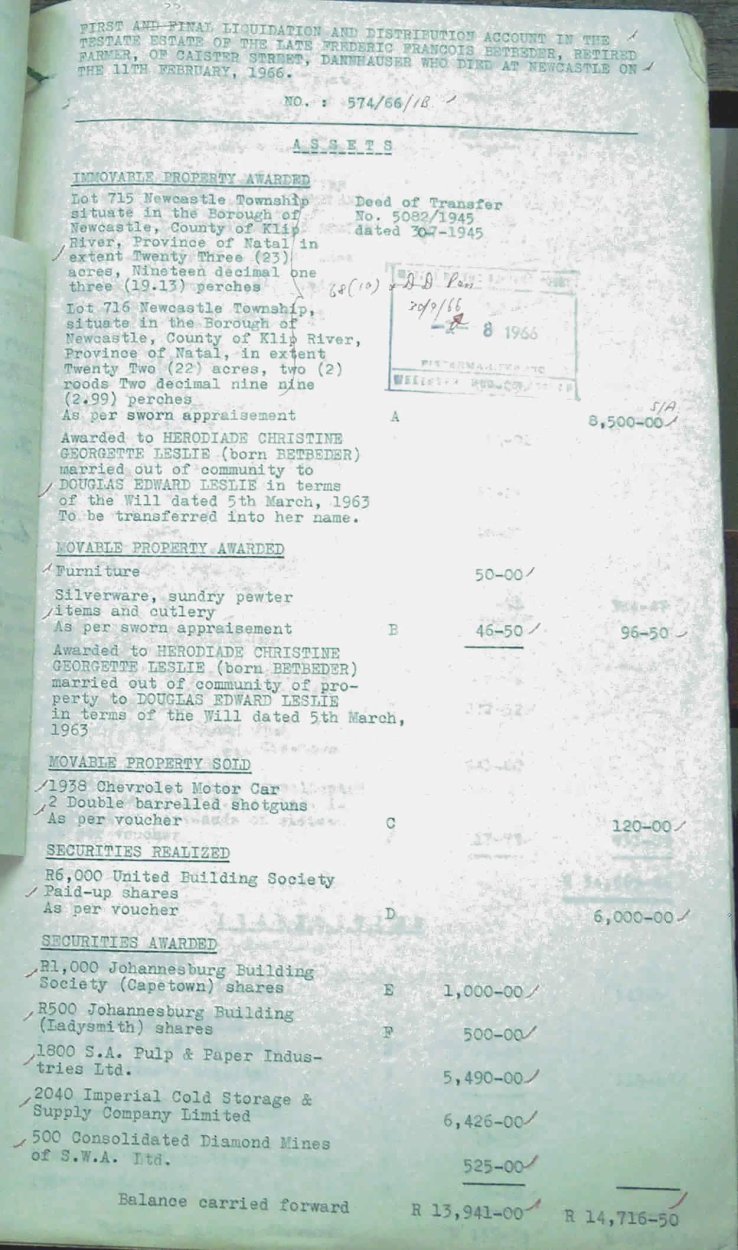 FIRST AND FINAL LIQUIDATION AND DISTRIBUTION ACCOUNT IN THE
TESTATE ESTATE OF THE LATE FREDERIC FRANCOIS BETBEDER, RETIRED
FARMER, OF CAISTER STREET, DANNHAUSER WHO DIED AT NEWCASTLE ON
THE 11TH FEBRUARY, 1966.
NO. : 574/66/1B
ASSETS
IMMOVABLE PROPERTY AWARDED
Lot 715 Newcastle Township Deed of Transfer
situate in the Borough of No. 5082/1945
Newcastle, County of Klip dated 30-7-1945
River, Province of Natal in
extent Twenty Three (23)
acres, Nineteen decimal one
three (19.13) perches
Lot 716 Newcastle Township,
situate in the Borough of
Newcastle, County of Klip River, 8 1966
Province of Natal, in extent
Twenty Two (22) acres, two (2)
roods Two decimal nine nine
(2.99) perches
S/A
As per sworn appraisement A 8,500-00
Awarded to HERODIADE CHRISTINE
GEORGETTE LESLIE (born BETBEDER)
married out of community to
DOUGLAS EDWARD LESLIE in terms
of the Will dated 5th March, 1963
To be transferred into her name.
MOVABLE PROPERTY AWARDED
Furniture 50-00
Silverware, sundry pewter
items and cutlery
As per sworn appraisement B 46-50 96-50
Awarded to HERODIADE CHRISTINE
GEORGETTE LESLIE (born BETBEDER)
married out of community of pro-
perty to DOUGLAS EDWARD LESLIE
in terms of the Will dated 5th March,
1963
MOVABLE PROPERTY SOLD
1938 Chevrolet Motor Car
2 Double barrelled shotguns
As per voucher C 120-00
SECURITIES REALIZED
R6,000 United Building Society
Paid-up shares
As per voucher D 6,000-00
SECURITIES AWARDED
R1,000 Johannesburg Building
Society (Capetown) shares E 1,000-00
R500 Johannesburg Building
(Ladysmith) shares F 500-00
1800 S.A. Pulp & Paper Indus-
tries Ltd. 5,490-00
2040 Imperial Cold Storage &
Supply Company Limited 6,426-00
500 Consolidated Diamond Mines
of S.W.A. Ltd. 525-00
Balance carried forward R 13,941-00 R 14,716-50